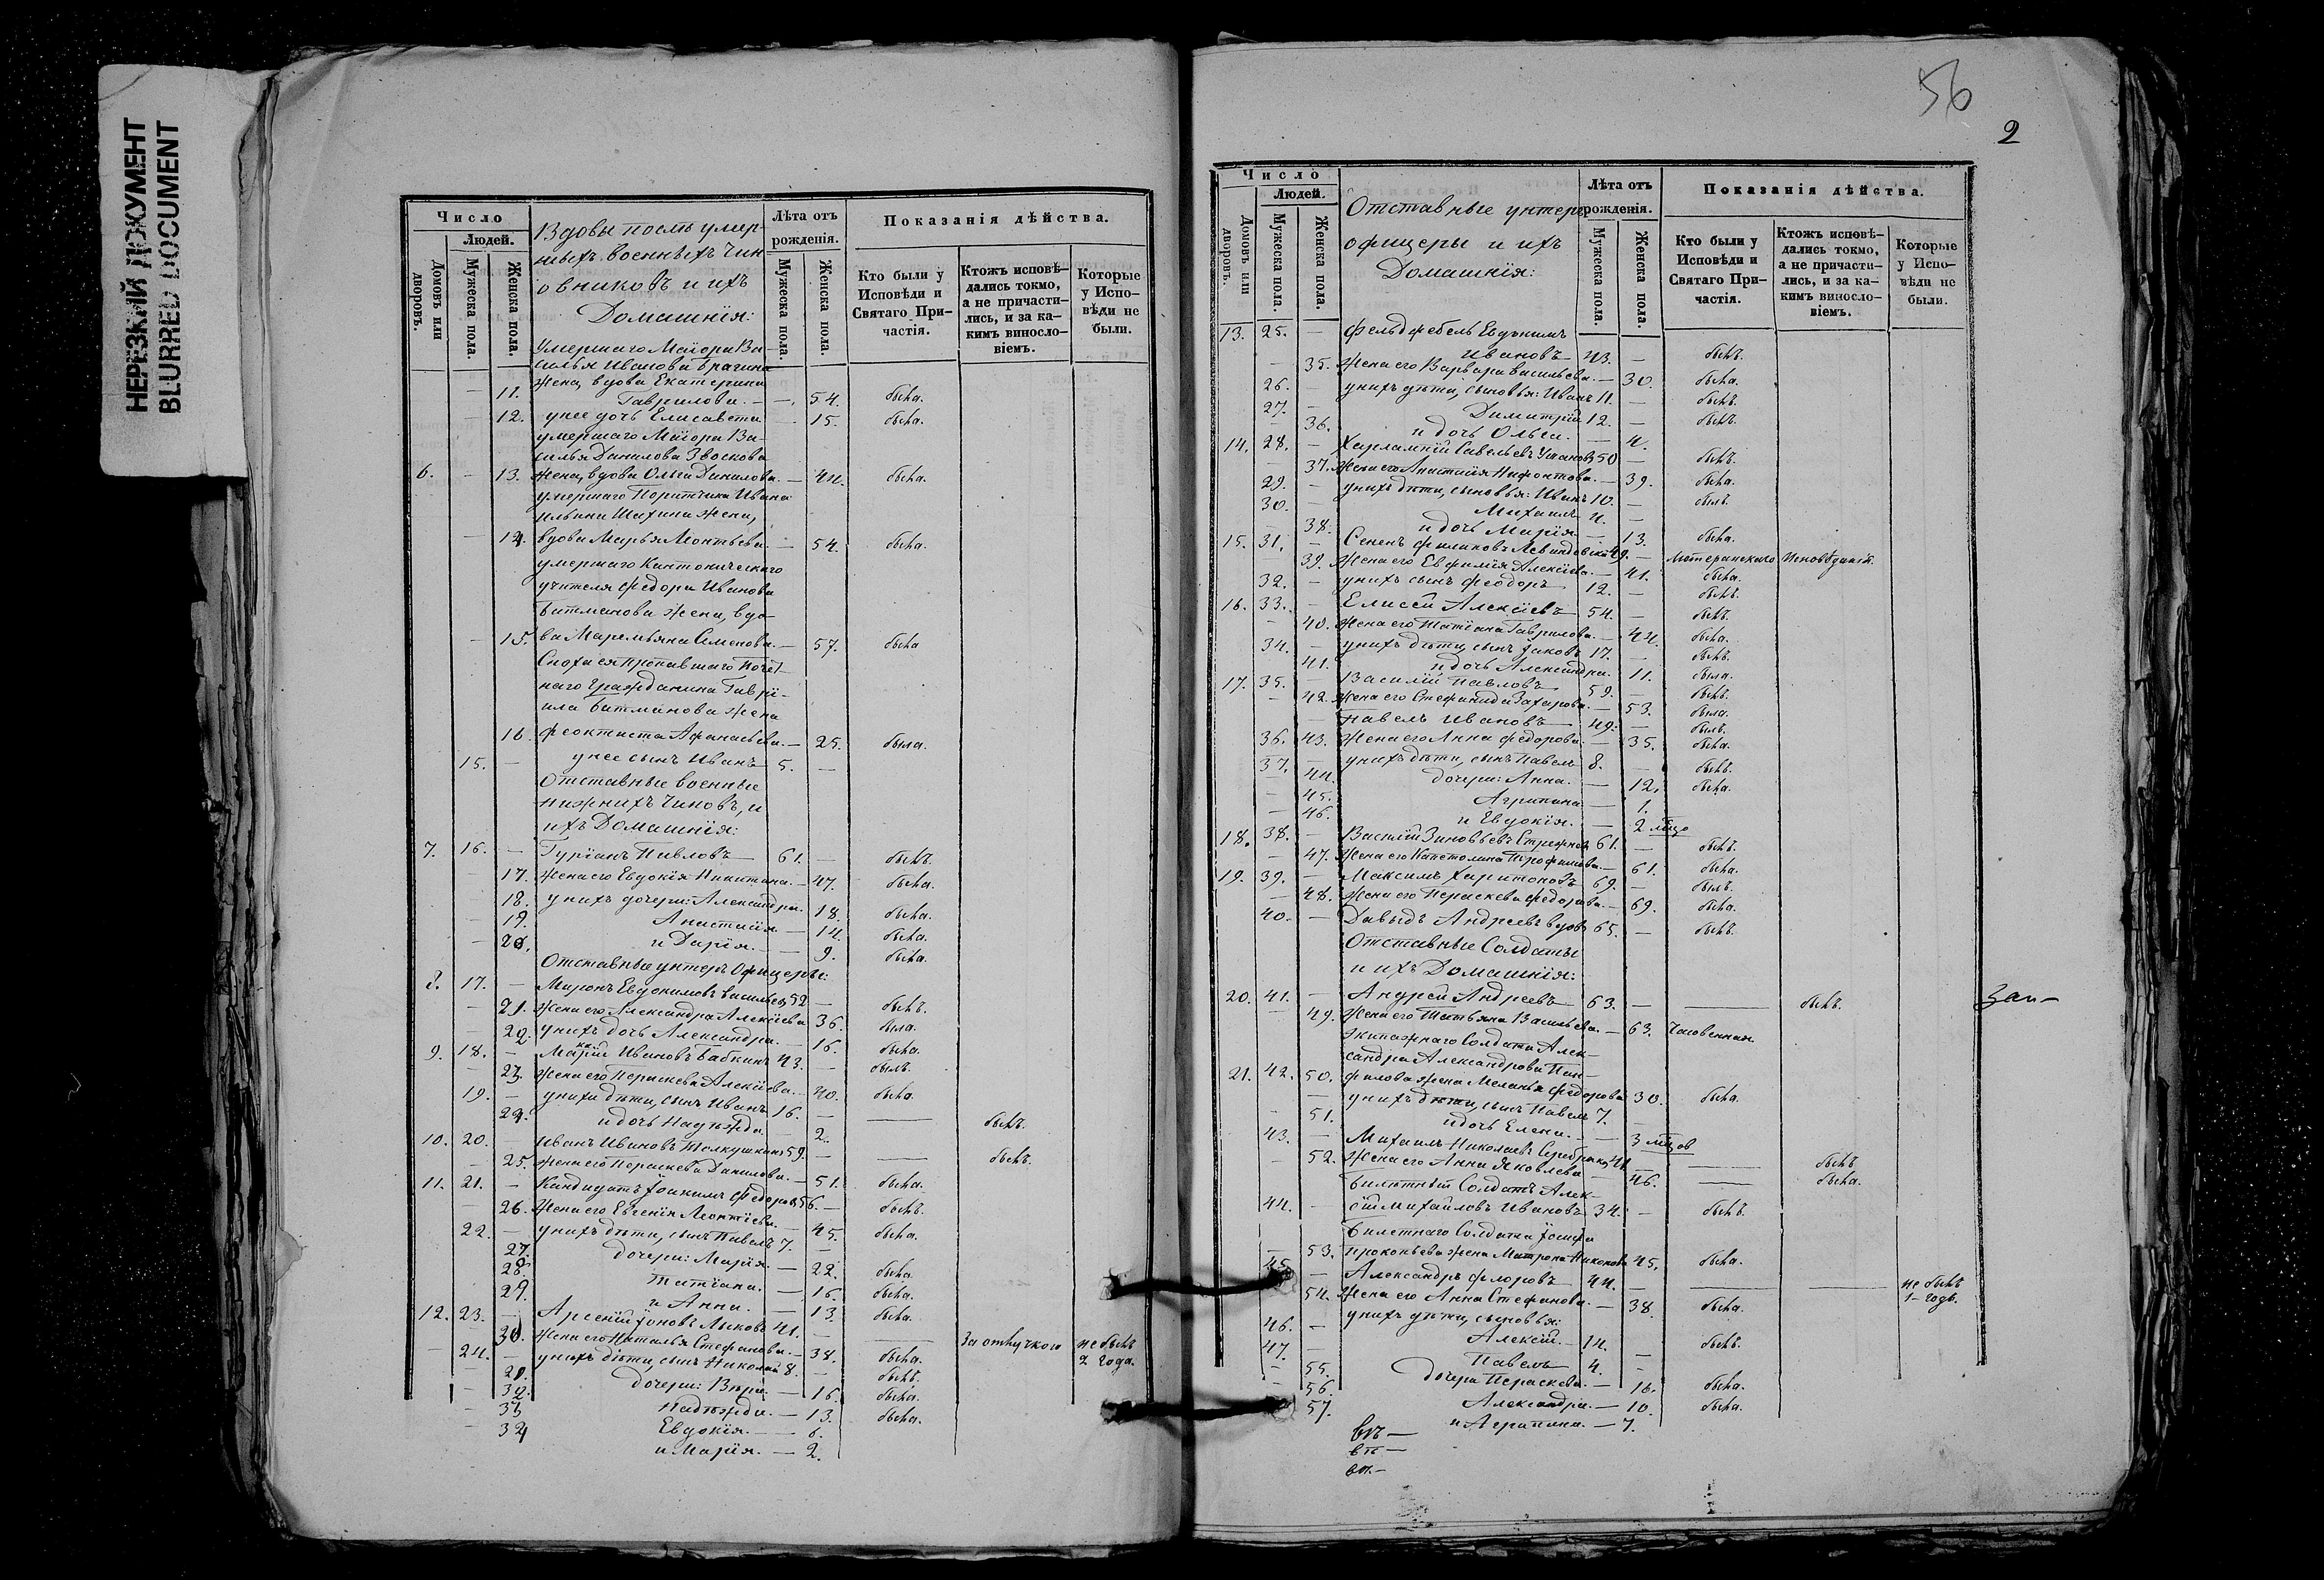 НЕРЕЗКИЙ ДОКУМЕНТ
BLURRED DOCUMENT
Число
Людей.
Домовъ или дворовъ.
Мужеска пола.
Женска пола.
Вдовы послѣ умер-
шихъ военныхъ чин-
овниковъ и ихъ
Домашнія:
Лѣта отъ рожденія.
Мужеска пола.
Женска пола.
Показанія дѣйства.
Кто были у Исповѣди и Святаго При-частія.
Ктожъ исповѣ-дались токмо, а не причасти-лись, и за ка-кимъ винословіемъ.
Которые у Испо-вѣди не были.
Умершаго Маіора Ва-
силья Иванова Брагина
— 11. жена, вдова Екатерина
Гаврилова. — 54. была.
— 12. у нее дочь Елисавета — 15. была.
умершаго Маіора Ва-
силья Данилова Звоскова
6. — 13. жена, вдова Ольга Данилова. — 44. была.
умершаго Порутчика Ивана
Ильина Шахина жена,
— 14. вдова Марья Леонтьева. — 54. была.
умершаго Кантоническаго
учителя Федора Иванова
Битманова жена, вдо-
— 15. ва Маремьяна Семенова. — 57. была
Сноха ея пропавшаго Почет-
наго Гражданина Гаврі-
ила Битманова жена
16. Феоктиста Афанасьева. — 25. была.
15. — у нее сынъ Иванъ 5. —
Отставные военные
нижнихъ чиновъ, и
ихъ Домашнія:
7. 16. — Гуріанъ Павловъ 61. — былъ.
— 17. жена его Евдокія Никитина. — 47. была.
— 18. у нихъ дочери: Александра. 18. была.
— 19. Анастасія. — 14. была.
— 20. и Дарія. — 9. была.
Отставные унтеръ Офицеры:
8. 17. — Миронъ Евдокимовъ Васильевъ 52 — былъ.
— 21. жена его Александра Алексіева 36. была.
— 22. у нихъ дочь Александра. — 16. была.
9. 18. — Ивановъ Бабкинъ 43. — былъ.
— 23. жена его Параскева Алексіева. — 40. была.
19. — у нихъ дѣти, сынъ Иванъ 16. — былъ.
24. и дочь Надежда — 2.
10. 20. — Иванъ Ивановъ Толкушкинъ 59. — былъ.
— 25. жена его Параскева Данилова. — 51. была.
11. 21. — Кандидатъ Іоакимъ Федоровъ 56. — былъ.
— 26. жена его Евгенія Леонтіева. — 45. была.
22. — у нихъ дѣти, сынъ Павелъ 7. —
27. дочери: Марія. — 22. была.
28. Татіана. — 16. была.
29. и Анна. — 13. была.
12. 23. — Арсеній Іоновъ Лыковъ 41. — За отлучкою не былъ 2 года.
— 30. жена его Наталья Стефанова. — 38. была.
24. — у нихъ дѣти, сынъ Николай 8. — былъ.
— 31. дочери: Вѣра. — 16. была.
— 32. Надежда. — 13. была.
— 33 Евдокія. — 6.
34 и Марія. — 2.
56
2
Число
Людей.
Домовъ или дворовъ.
Мужеска пола.
Женска пола.
Отставные унтеръ
офицеры и ихъ
Домашнія:
Лѣта отъ рожденія.
Мужеска пола.
Женска пола.
Показанія дѣйства.
Кто были у Исповѣди и Святаго При-частія.
Ктожъ исповѣ-дались токмо, а не причасти-лись, и за ка-кимъ винословіемъ.
Которые у Испо-вѣди не были.
13. 25. — Фельдфебель Евдокимъ
Ивановъ 43. — былъ.
35. жена его Варвара Васильева. — 30. была.
26. — у нихъ дѣти, сыновья: Иванъ 11. — былъ.
27. — Димитрій 12. — былъ.
— 36. и дочь Ольга. — 4.
14. 28. — Харлампій Савельевъ 50 — былъ.
— 37. жена его Анастасія Нифонтова. — 39. была.
29. — у нихъ дѣти, сыновья: Иванъ 10. — былъ.
30. — Михаилъ 4. —
— 38. и дочь Марія. — 13. была.
15. 31. — Семенъ Филиповъ 49. — Лютеранскаго Исповѣданія.
39. жена его Евфимія Алексіева. — 41. была.
32. — у нихъ сынъ Феодоръ 12. — былъ.
16. 33. — Елисей Алексіевъ 54. — былъ.
— 40. жена его Татіана Гаврилова. — 44. была.
34. — у нихъ дѣти, сынъ Іаковъ 17. — былъ.
— 41. и дочь Александра. 11. была.
17. 35. — Василій Павловъ 59. — былъ.
— 42. жена его Стефанида Захарова. — 53. была.
Павелъ Ивановъ 49. — былъ.
36. 43. жена его Анна Федорова. — 35. была.
37. — у нихъ дѣти, сынъ Павелъ 8. — былъ.
— 44. дочери: Анна. — 12. была.
— 45. Агрипина — 1.
— 46. и Евдокія. — 2
18. 38. — Василій Зиновьевъ 61. — былъ.
— 47. жена его Капетолина Трофимова. — 61. была.
19. 39. — Максимъ Харитоновъ 69. — былъ.
— 48. жена его Параскева Федорова. — 69. была.
40. — Давыдъ Андреевъ вдовъ 65. — былъ.
Отставные Солдаты
и ихъ Домашнія:
20. 41. — Андрей Андреевъ 63. — былъ.
— 49. жена его Татьяна Васильева. — 63. Часовенная
Экипажнаго Солдата Алек-
сандра Александрова Пан-
21. 42. 50. филова жена Меланья Федорова 30. была.
— у нихъ дѣти, сынъ Павелъ 7.
— 51. и дочь Елена. — 3
43. — Михаилъ Николаевъ 41 былъ
— 52. жена его Анна Яковлева — 46. была.
Билетный Солдатъ Алек-
44. — Михайловъ Ивановъ 34. — былъ.
Билетнаго Солдата Іосифа
— 53. Прокопьева жена Матрона 45. была.
45. — Александръ Флоровъ 44. — не былъ 1 годъ.
54. жена его Анна Стефанова. — 38 была.
46. — у нихъ дѣти, сыновья:
Алексій. 14. былъ.
47. — Павелъ 4. —
— 55. дочери Параскева. — 16. была.
— 56. Александра. — 10. была.
57. и Агрипина. — 7.
Зап—